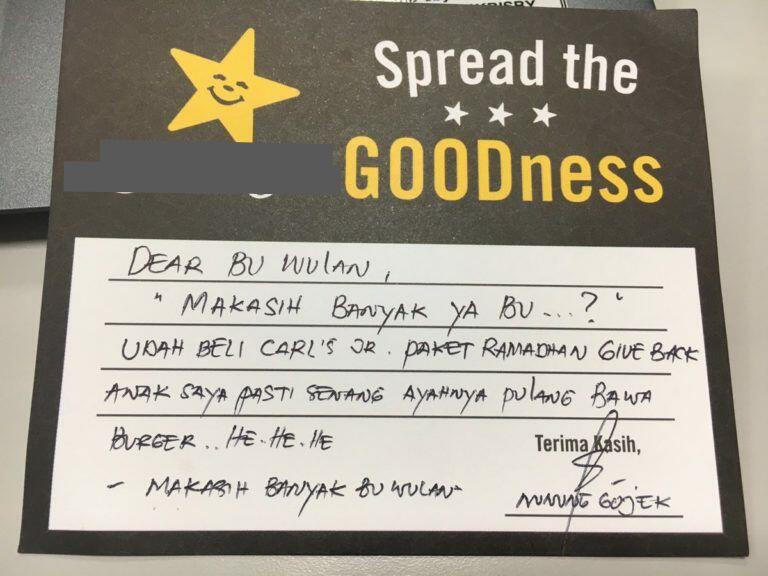 RISBY
Spread the
GOODness
DEAR BU WULAN,
" MAKASIH BANYAK YA BU...? "
UDAH BELI CARL'S JR. PAKET RAMADHAN GIVE BACK
ANAK SAYA PASTI SENANG AYAHNYA PULANG BAWA
BURGER.. HE.HE.HE
Terima Kasih,
- MAKASIH BANYAK BU WULAN-
NUNUNG GOJEK